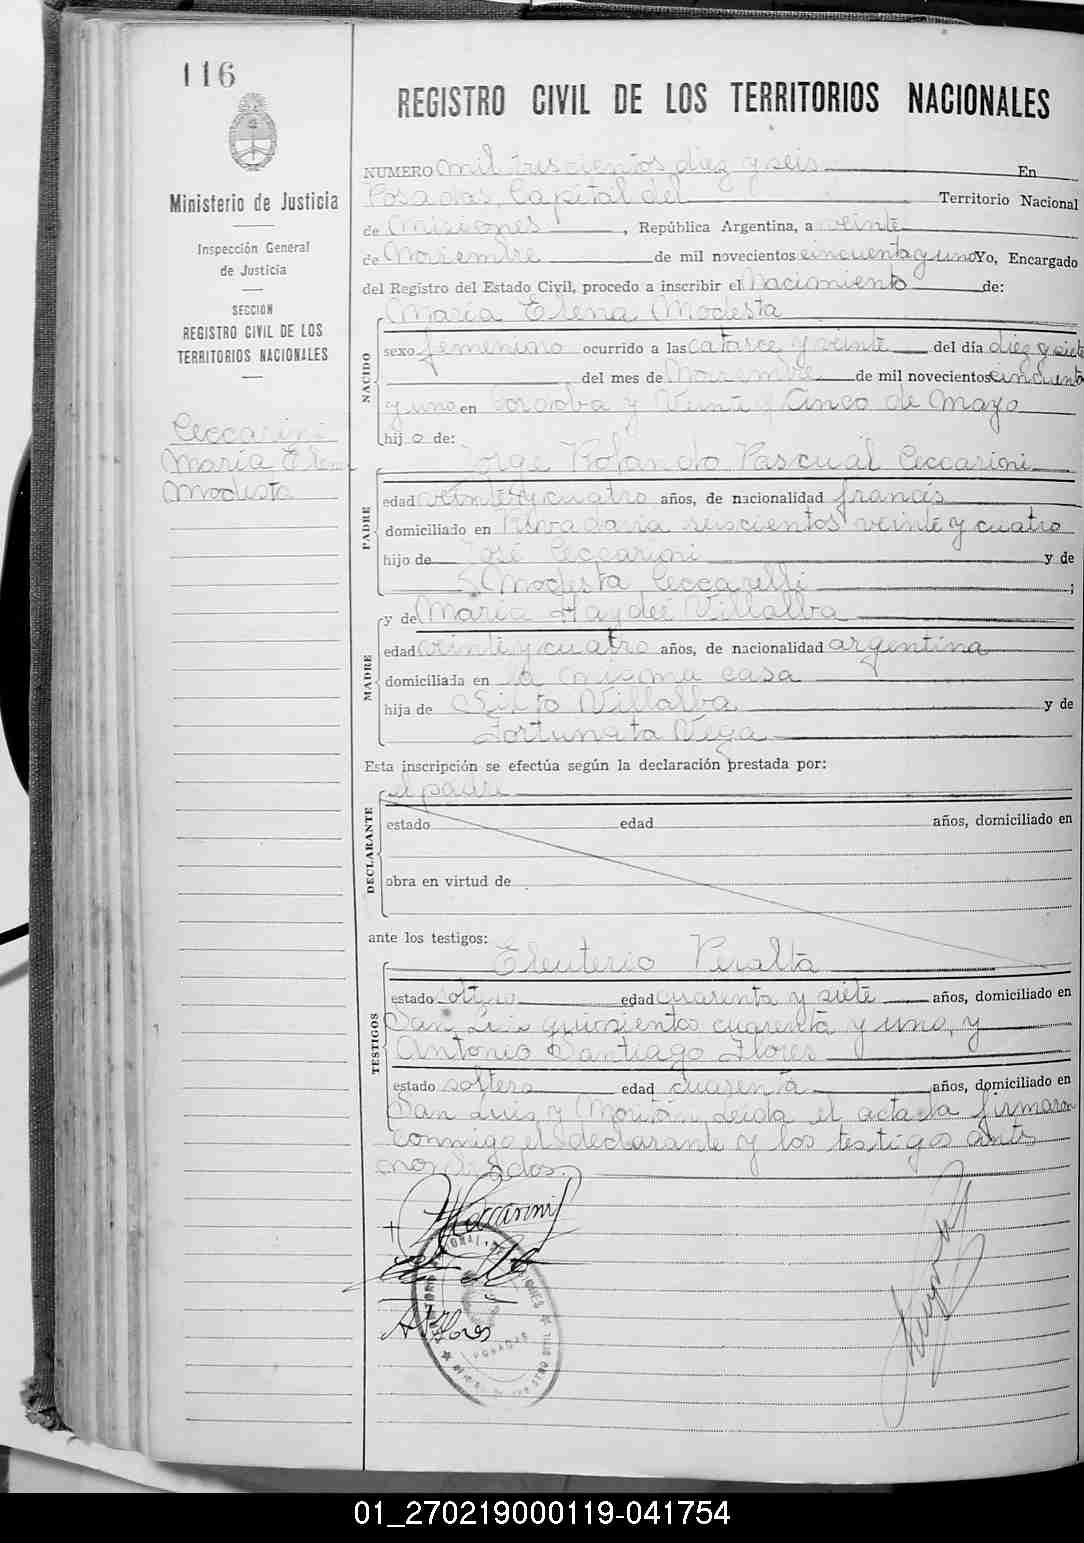 116
REGISTRO CIVIL DE LOS TERRITORIOS NACIONALES
Ministerio de Justicia
Inspección General
de Justicia
SECCION
REGISTRO CIVIL DE LOS
TERRITORIOS NACIONALES
Ceccarini
María Elena
Modesta
NUMERO mil trescientos diez y seis En
Posadas, Capital del Territorio Nacional
de Misiones, República Argentina, a veinte
de Noviembre de mil novecientos cincuenta y uno Yo, Encargado
del Registro del Estado Civil, procedo a inscribir el Nacimiento de:
María Elena Modesta
NACIDO
sexo femenino ocurrido a las catorce y veinte del día diez y siete
del mes de Noviembre de mil novecientos cincuenta
y uno en Córdoba y Veinte y Cinco de Mayo
hij a de:
Jorge Rolando Pascual Ceccarini
PADRE
edad veinte y cuatro años, de nacionalidad francés
domiciliado en Rivadavia seiscientos veinte y cuatro
hijo de José Ceccarini y de
Modesta Ceccarelli ;
y de María Haydeé Villalba
MADRE
edad veinte y cuatro años, de nacionalidad argentina
domiciliada en la misma casa
hija de Sixto Villalba y de
Fortunata Vega
Esta inscripción se efectúa según la declaración prestada por:
el padre
DECLARANTE
estado edad años, domiciliado en
obra en virtud de
ante los testigos:
Eleuterio Peralta
TESTIGOS
estado soltero edad cuarenta y siete años, domiciliado en
San Luis quinientos cuarenta y uno, y
Antonio Santiago Flores
estado soltero edad cuarenta años, domiciliado en
San Luis y Leida el acta la firmaron
conmigo el declarante y los testigos ants
Ceccarini
A S Flores
POSADAS
01_270219000119-041754